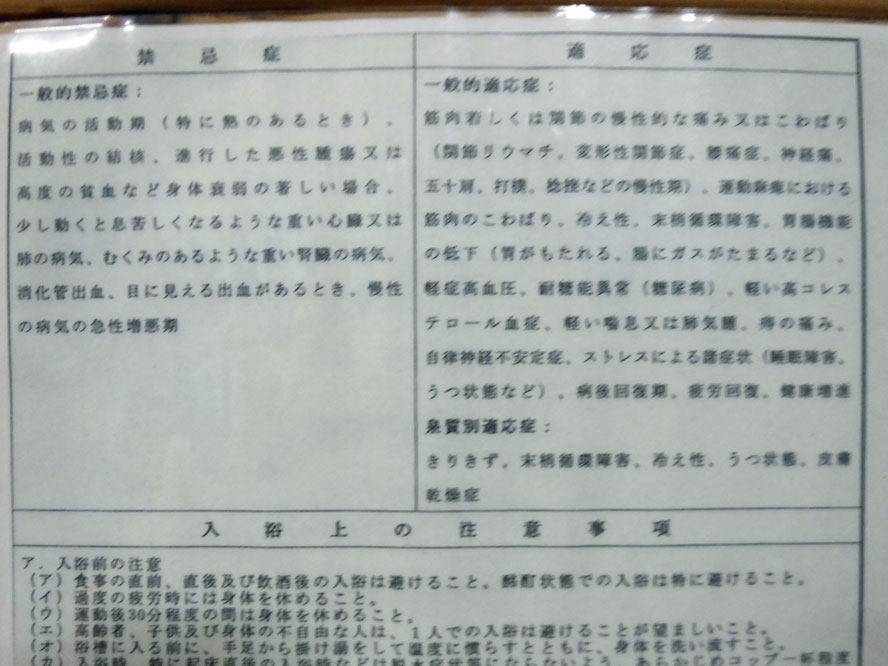 禁忌症
一般的禁忌症：
病気の活動期（特に熱のあるとき）、
活動性の結核、進行した悪性腫瘍又は
高度の貧血など身体衰弱の著しい場合、
少し動くと息苦しくなるような重い心臓又は
肺の病気、むくみのあるような重い腎臓の病気、
消化管出血、目に見える出血があるとき、慢性
の病気の急性増悪期
適応症
一般的適応症：
筋肉若しくは関節の慢性的な痛み又はこわばり
（関節リウマチ、変形性関節症、腰痛症、神経痛、
五十肩、打撲、捻挫などの慢性期）、運動麻痺における
筋肉のこわばり、冷え性、末梢循環障害、胃腸機能
の低下（胃がもたれる、腸にガスがたまるなど）、
軽症高血圧、耐糖能異常（糖尿病）、軽い高コレス
テロール血症、軽い喘息又は肺気腫、痔の痛み、
自律神経不安定症、ストレスによる諸症状（睡眠障害、
うつ状態など）、病後回復期、疲労回復、健康増進
泉質別適応症：
きりきず、末梢循環障害、冷え性、うつ状態、皮膚
乾燥症
入浴上の注意事項
ア．入浴前の注意
（ア）食事の直前、直後及び飲酒後の入浴は避けること。酩酊状態での入浴は特に避けること。
（イ）過度の疲労時には身体を休めること。
（ウ）運動後30分程度の間は身体を休めること。
（エ）高齢者、子供及び身体の不自由な人は、1人での入浴は避けることが望ましいこと。
（オ）浴槽に入る前に、手足から掛け湯をして温度に慣らすとともに、身体を洗い流すこと。
（カ）入浴時、特に起床直後の入浴時などは脱水症状等にならないよう、あらかじめコップ一杯程度